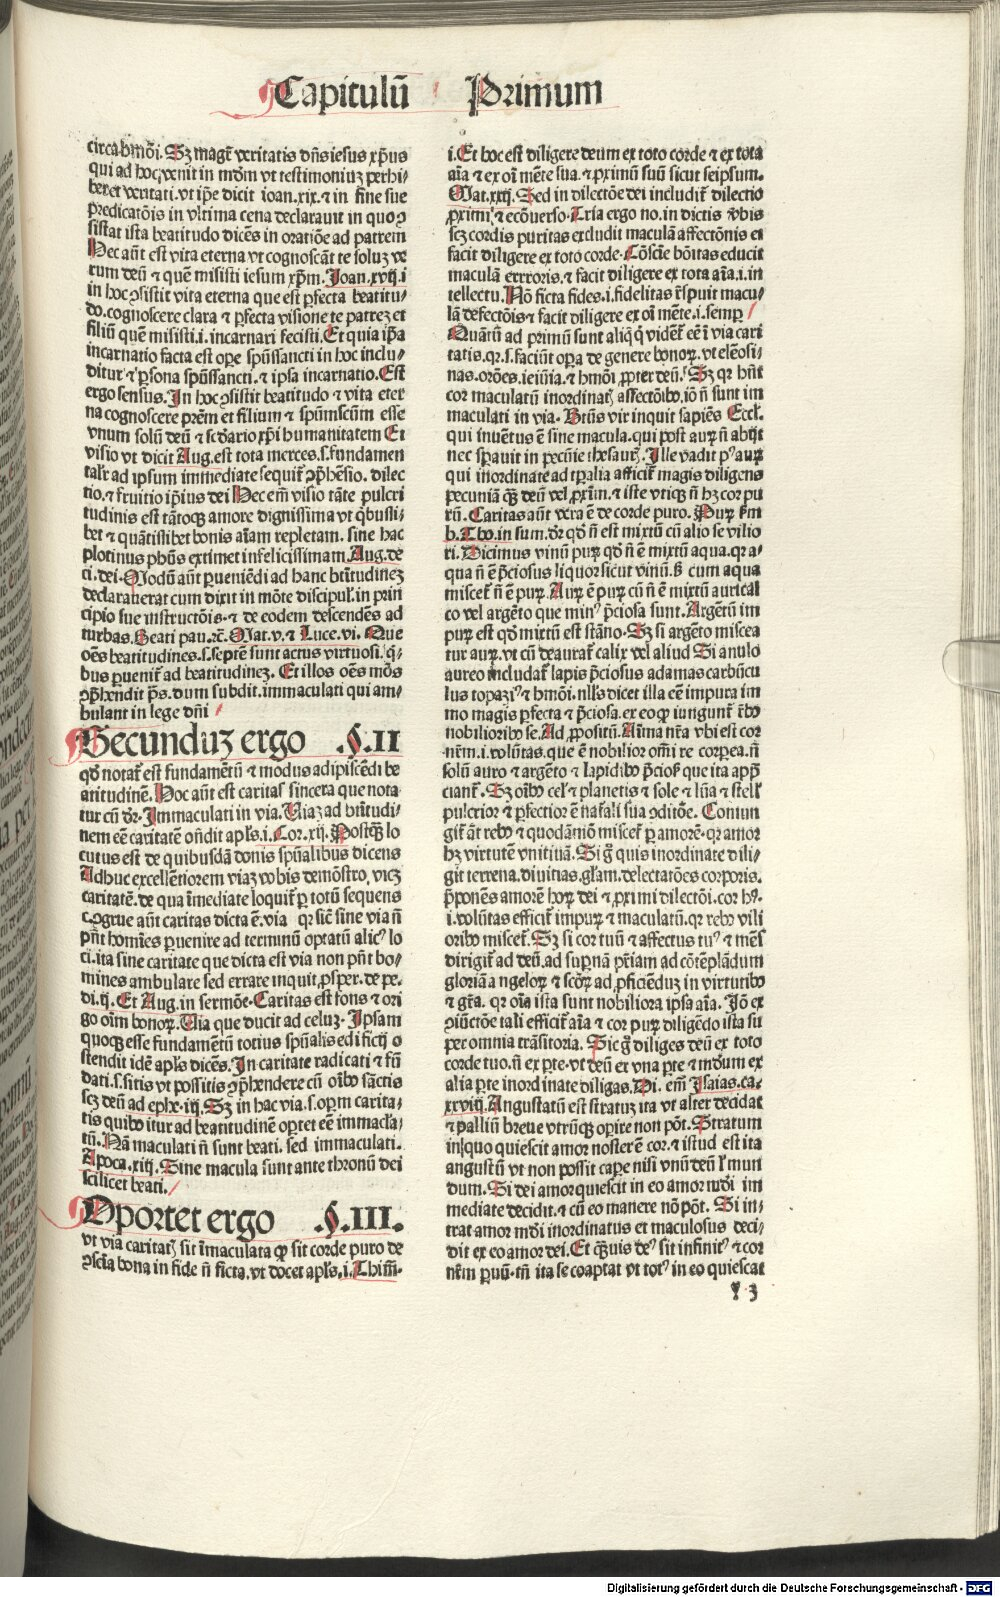 Capitulū Primum
circa hmōi. Sz magr̄ veritatis dn̄s iesus xp̄us
qui ad hoc venit in mūdm vt testimoniuz perhi⸗
beret veritati. vt ip̄e dicit ioan. xix. ⁊ in fine sue
predicatōis in vltima cena declarauit in quo ꝯ
sistat ista beatitudo dicēs in oratiōe ad patrem
Hec aūt est vita eterna vt cognoscāt te soluz ve
rum deū ⁊ quē misisti iesum xp̄m. Joan. xvij. i
in hoc ꝯsistit vita eterna que est ꝑfecta beatitu⸗
do. cognoscere clara ⁊ ꝑfecta visione te patrez et
filiū quē misisti. i. incarnari fecisti. Et quia ip̄a
incarnatio facta est ope spūssancti in hoc inclu⸗
ditur ⁊ ꝑsona spūssancti. ⁊ ipsa incarnatio. Est
ergo sensus. In hoc ꝯsistit beatitudo ⁊ vita eter
na cognoscere prēm et filium ⁊ spūmscūm esse
vnum solū deū ⁊ scd̄ario xp̄i humanitatem Et
visio vt dicit Aug. est tota merces. s. fundamen
talr̄ ad ipsum immediate sequit̄ ꝯp̄hēsio. dilec
tio. ⁊ fruitio ip̄ius dei Hec em̄ visio tāte pulcri
tudinis est tātoqꝫ amore dignissima vt qͥbusli⸗
bet ⁊ quātislibet bonis aīam repletam. sine hac
plotinus ph̄us extimet infelicissimam. Aug. de
ci. dei. Modū aūt ꝑueniēdi ad hanc btītudinez
declarauerat cum dixit in mōte discipul̄. in prin
cipio sue instructōis. ⁊ de eodem descendēs ad
turbas. Beati pau. ⁊c̄. Mat. v. ⁊ Luce. vi. Que
oēs beatitudines. s. septē sunt actus virtuosi. qͥ⸗
bus ꝑuenit̄ ad beatitudinez. Et illos oēs mōs
ꝯp̄hendit p̄s. dum subdit. immaculati qui am⸗
bulant in lege dn̄i
Secunduz ergo .§. II
qd̄ notat̄ est fundamētū ⁊ modus adipiscēdi be
atitudinē. Hoc aūt est caritas sincera que nota
tur cū dr̄. Immaculati in via. Uiaz ad btītudi⸗
nem eē caritatē on̄dit apl̄s. i. Cor. xij. Postqꝫ lo
cutus est de quibusdā donis spūalibus dicens
Adhuc excellētiorem viaz vobis demōstro. vicꝫ
caritatē. de qua īmediate loquit̄ ꝑ totū sequens
cōgrue aūt caritas dicta ē. via qꝛ sic̄ sine via n̄
pn̄t homīes ꝑuenire ad terminū optatū alicꝰ lo
ci. ita sine caritate que dicta est via non pn̄t ho⸗
mines ambulare sed errare inquit ꝓsper. de pe.
di. ij. Et Aug. in sermōe. Caritas est fons ⁊ ori
go oīm bonoꝝ. Uia que ducit ad celuz. Ipsam
quoqꝫ esse fundamētū totius spūalis edificij o
stendit idē apl̄s dicēs. In caritate radicati ⁊ fū
dati. s. sitis vt possitis ꝯp̄hendere cū oībꝰ sāctis
scꝫ deū ad ephe. iij. Sz in hac via. s. oꝑm carita⸗
tis quibꝰ itur ad beatitudinē optet eē immacla⸗
tū. Nā maculati n̄ sunt beati. sed immaculati.
Apoca. xiiij. Sine macula sunt ante thronū dei
scilicet beati.
Oportet ergo .§. III.
vt via caritat̄ sit īmaculata qꝙ sit corde puro de
ꝯscīa bona in fide n̄ ficta. vt docet apl̄s. i. Thim̄.
i. Et hoc est diligere deum ex toto corde ⁊ ex tota
aīa ⁊ ex oī mēte sua. ⁊ ꝓximū suū sicut seipsum.
Mat. xxij. Sed in dilectōe dei includit̄ dilectio
ꝓximi ⁊ ecōuerso. Tria ergo no. in dictis v̄bis
scꝫ cordis puritas excludit maculā affectōnis et
facit diligere ex toto corde. Cōscīe bōitas educit
maculā erroris. ⁊ facit diligere ex tota aīa. i. in
tellectu. Nō ficta fides. i. fidelitas r̄spuit macu⸗
lā defectōis ⁊ facit diligere ex oī mēte. i. semꝑ
Quātū ad primū sunt aliqͥ qͥ vidēt̄ eē ī via cari
tatis. qꝛ. s. faciūt oꝑa de genere bonoꝝ. vt elēosi⸗
nas. orōes. ieiūia. ⁊ hmōi ꝓpter deū. Sz qꝛ hn̄t
cor maculatū inordinat̄ affectōibꝰ. iō n̄ sunt im
maculati in via. Btūs vir inquit sapiēs Eccl̄.
qui inuētus ē sine macula. qui post auꝝ n̄ abijt
nec sperauit in pecūie thesaur̄. Ille vadit pꝰ auꝝ
qui inordinate ad tꝑalia afficit̄ magis diligens
pecuniā qꝫ deū vel ꝓxīm. ⁊ iste vtiqꝫ n̄ hꝫ cor pu
rū. Caritas aūt vera ē de corde puro. Puꝝ ẜm
b. Tho. in sum. dr̄ qd̄ n̄ est mixtū cū alio se vilio
ri. Dicimus vinū puꝝ qd̄ n̄ ē mixtū aqua. qꝛ a⸗
qua n̄ ē p̄ciosus liquor sicut vinū. ẜ cum aqua
miscet̄ n̄ ē puꝝ. Auꝝ ē puꝝ cū n̄ ē mixtū aurical
co vel argēto que minꝰ p̄ciosa sunt. Argētū im
puꝝ est qd̄ mixtū est stāno. Sz si argēto miscea
tur auꝝ. vt cū deaurat̄ calix vel aliud Si anulo
aureo includat̄ lapis p̄ciosus adamas carbūcu
lus topaziꝰ ⁊ hmōi. nllꝰs dicet illa eē impura im
mo magis ꝑfecta ⁊ p̄ciosa. ex eo qꝙ iungunt̄ r̄bꝰ
nobilioribꝰ se. Ad ꝓpositū. Aīma nr̄a vbi est cor
nr̄m. i. volūtas. que ē nobilior oīni re corꝑea. n̄
solū auro ⁊ argēto ⁊ lapidibꝰ p̄cios̄ que ita app̄
ciant̄. Sz oībꝰ cel̄ ⁊ planetis ⁊ sole ⁊ lūa ⁊ stell̄
pulcrior ⁊ ꝑfectior ē naturali sua ꝯditōe. Coniun
git̄ āt rebꝰ ⁊ quodāmō miscet̄ ꝑ amorē. qꝛ amor
hꝫ virtutē vnitiuā. Si gͦ quis inordinate dili⸗
git terrena. diuitias. gl̄am. delectatōes corporis.
p̄ponēs amorē hoꝝ dei ⁊ ꝓximi dilectōi. cor hꝰ.
i. volūtas efficit̄ impuꝝ ⁊ maculatū. qꝛ rebꝰ vili
oribꝰ miscet̄. Sz si cor tuū ⁊ affectus tuꝰ ⁊ mēs
dirigit̄ ad deū. ad supnā pr̄iam ad cōtēplādum
gloriā angeloꝝ ⁊ scōꝝ ad ꝓficiēduz in virtutibꝰ
⁊ gr̄a. qꝛ oīa ista sunt nobiliora ipsa aīa. Iō ex
ꝯiūctōe tali efficit̄ aīa ⁊ cor puꝝ diligēdo ista su
per omnia trāsitoria. Sic gͦ diliges deū ex toto
corde tuo. n̄ ex ꝑte. vt deū ex vna ꝑte ⁊ mūdum ex
alia ꝑte inordinate diligas. Di. em̄ Isaias. ca.
xxviij. Angustatū est stratuz ita vt alter decidat
⁊ palliū breue vtrūqꝫ oꝑire non pōt. Stratum
in quo quiescit amor noster ē cor. ⁊ istud est ita
angustū vt non possit caꝑe nisi vnū deū l̄ mun
dum. Si dei amor quiescit in eo amor mūdi im
mediate decidit. ⁊ cū eo manere nō pōt. Si in⸗
trat amor mūdi inordinatus et maculosus deci⸗
dit ex eo amor dei. Et qͣuis deꝰ sit infinitꝰ ⁊ cor
nr̄m ꝑuū. tn̄ ita se coaptat vt totꝰ in eo quiescat
Y 3
Digitalisierung gefördert durch die Deutsche Forschungsgemeinschaft - DFG